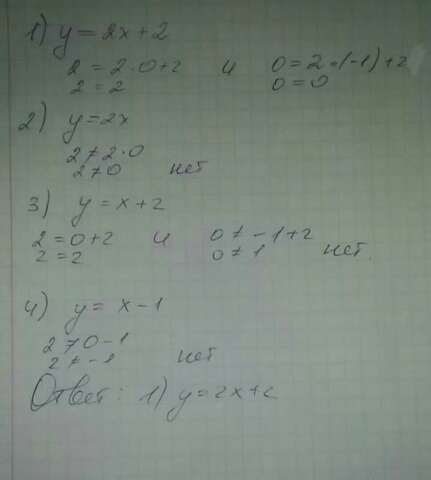 1) y = 2x + 2
2 = 2·0+2 и 0 = 2·(-1)+2
2 = 2 0 = 0
2) y = 2x
2 ≠ 2·0
2 ≠ 0 нет
3) y = x + 2
2 = 0+2 и 0 ≠ -1+2
2 = 2 0 ≠ 1 нет.
4) y = x - 1
2 ≠ 0-1
2 ≠ -1 нет
Ответ: 1) y = 2x+2